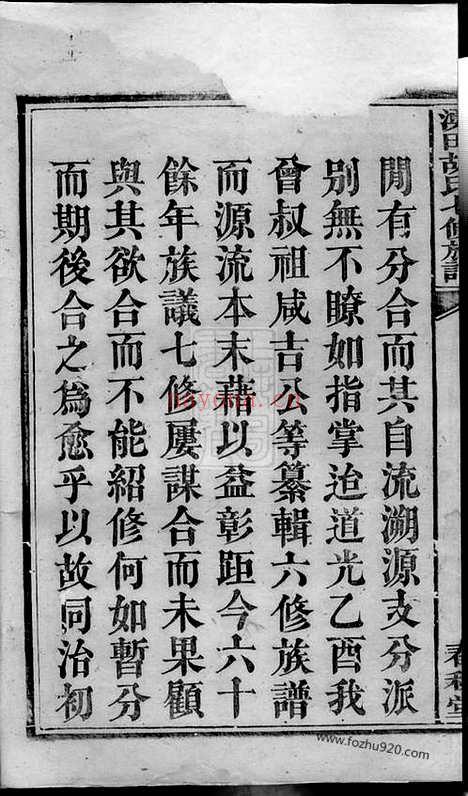 田胡氏七修族譜
春和堂
閒有分合而其自流溯源支分派
別無不瞭如指掌迨道光乙酉我
曾叔祖咸吉公等纂輯六修族譜
而源流本末藉以益彰距今六十
餘年族議七修屢謀合而未果顧
與其欲合而不能紹修何如暫分
而期後合之爲愈乎以故同治初
www.fozhu920.com